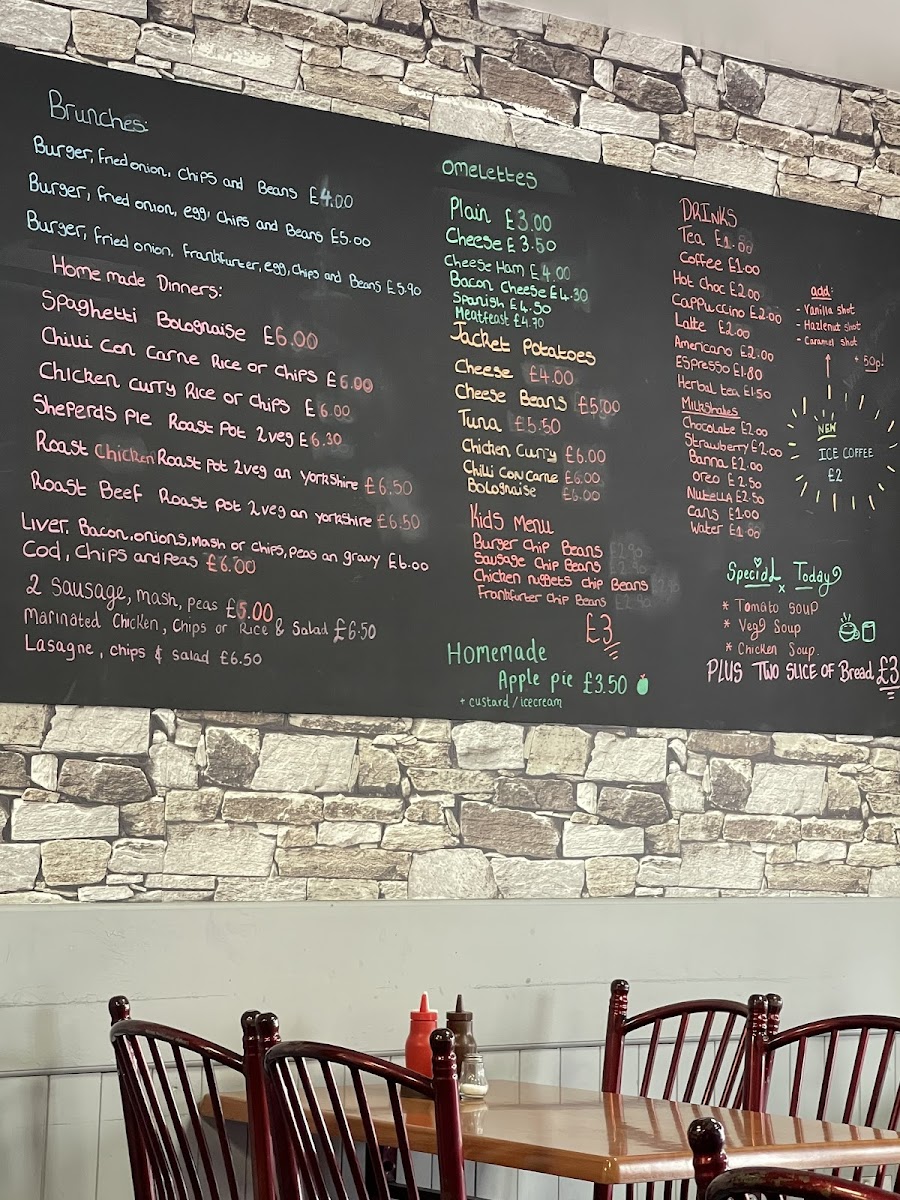 Brunches:
Burger, fried onion, chips and Beans £4.00
Burger, fried onion, egg, chips and Beans £5.00
Burger, fried onion, frankfurter, egg, chips and Beans £5.90
Home made Dinners:
Spaghetti Bolognaise £6.00
Chilli con Carne Rice or chips £6.00
Chicken curry Rice or chips £6.00
Sheperds pie Roast Pot 2 veg £6.30
Roast Chicken Roast pot 2 veg an yorkshire £6.50
Roast Beef Roast pot 2 veg an yorkshire £6.50
Liver, Bacon, onions, mash or chips, peas an gravy £6.00
Cod, chips and peas £6.00
2 Sausage, mash, peas £5.00
Marinated Chicken, chips or Rice & Salad £6.50
Lasagne, chips & salad £6.50
Omelettes
Plain £3.00
Cheese £3.50
Cheese Ham £4.00
Bacon Cheese £4.30
Spanish £4.50
Meatfeast £4.70
Jacket Potatoes
Cheese £4.00
Cheese Beans £5.00
Tuna £5.50
Chicken Curry £6.00
Chilli con carne £6.00
Bolognaise £6.00
Kids Menu
Burger chip Beans £2.90
Sausage chip Beans £2.90
Chicken nuggets chip Beans £2.90
Frankfurter chip Beans £2.90
£3
Homemade
Apple pie £3.50
+ custard / icecream
DRINKS
Tea £1.00
Coffee £1.00
Hot Choc £2.00
Cappuccino £2.00
Latte £2.00
Americano £2.00
Espresso £1.80
Herbal tea £1.50
Milkshakes
Chocolate £2.00
Strawberry £2.00
Banna £2.00
Oreo £2.50
Nutella £2.50
Cans £1.00
Water £1.00
add:
- Vanilla shot
- Hazlenut shot
- Caramel shot
+ 50p!
NEW
ICE COFFEE
£2
Special Today
* Tomato soup
* Veg Soup
* Chicken Soup.
PLUS TWO SLICE OF Bread £3